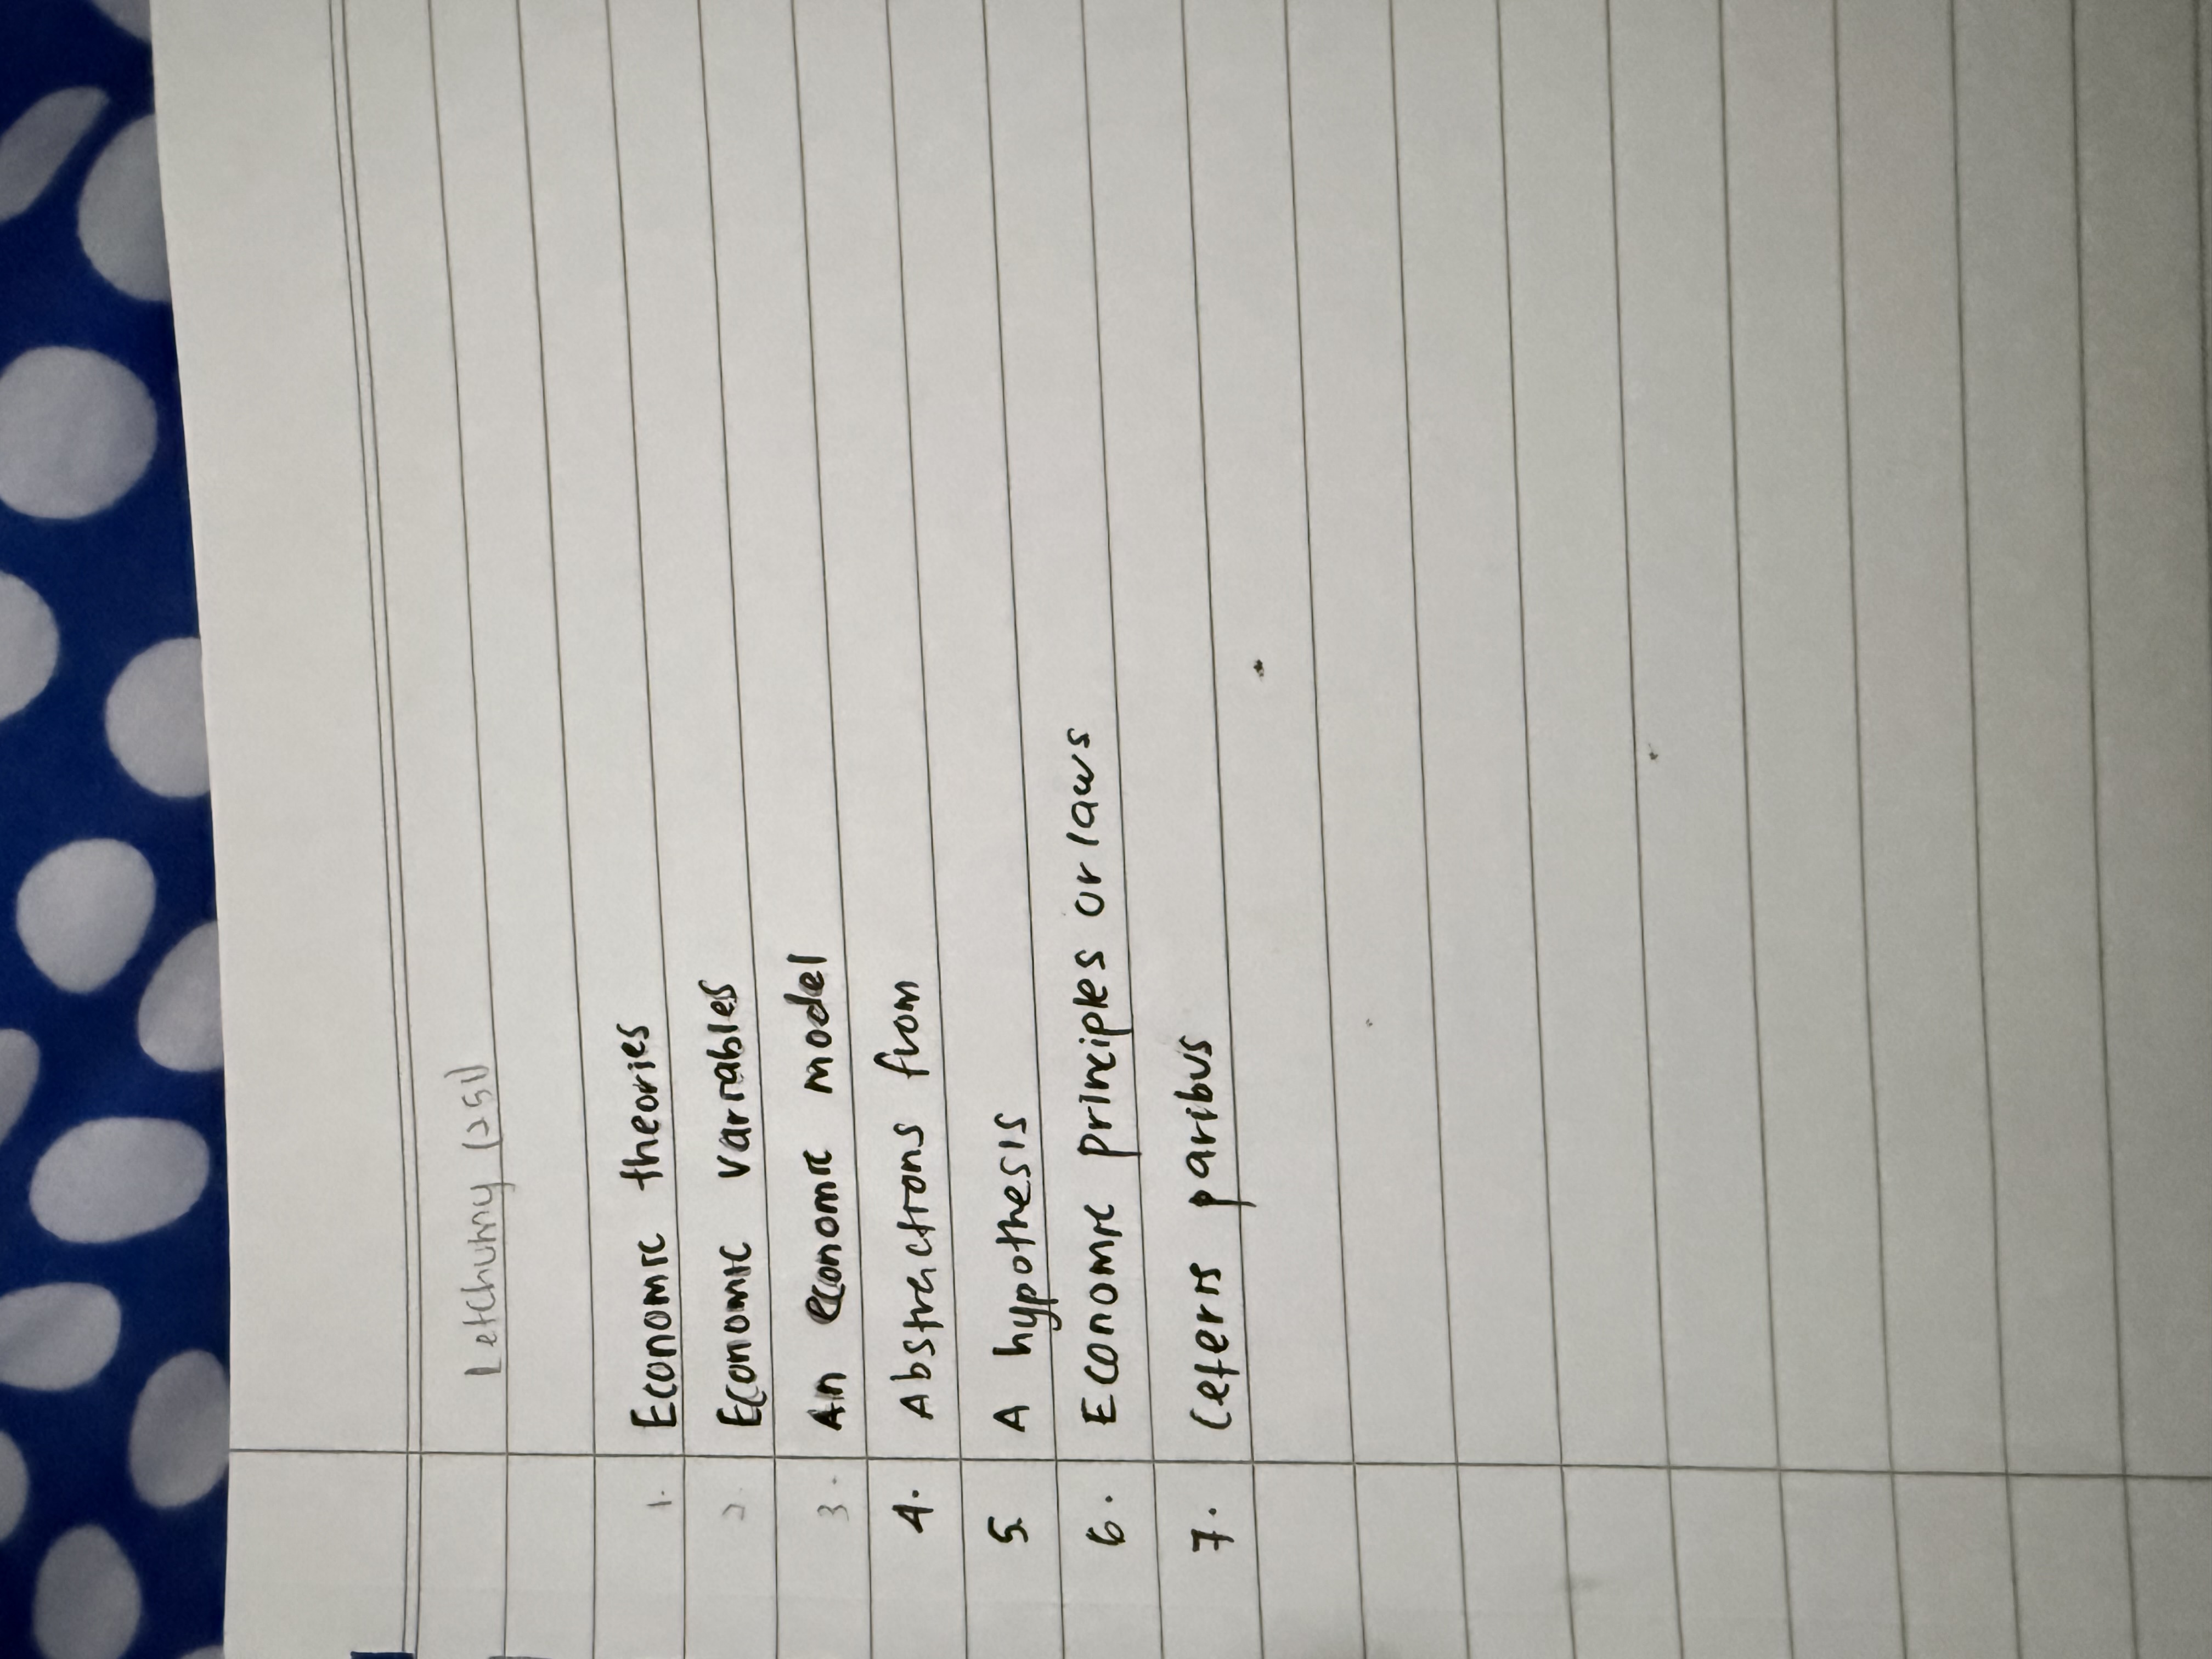 Letchumy (251)
1. Economic theories
2. Economic variables
3. An economic model
4. Abstractions from
5. A hypothesis
6. Economic principles or laws
7. Ceteris paribus